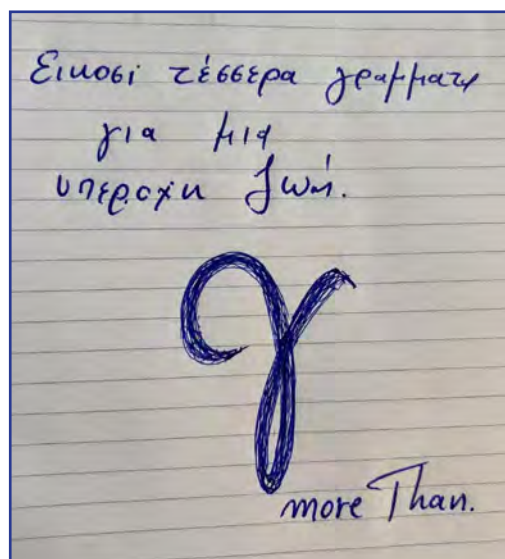 Εικοσι τέσσερα γραμματα
για μια
υπεροχη ζωή.
γ
more Than.